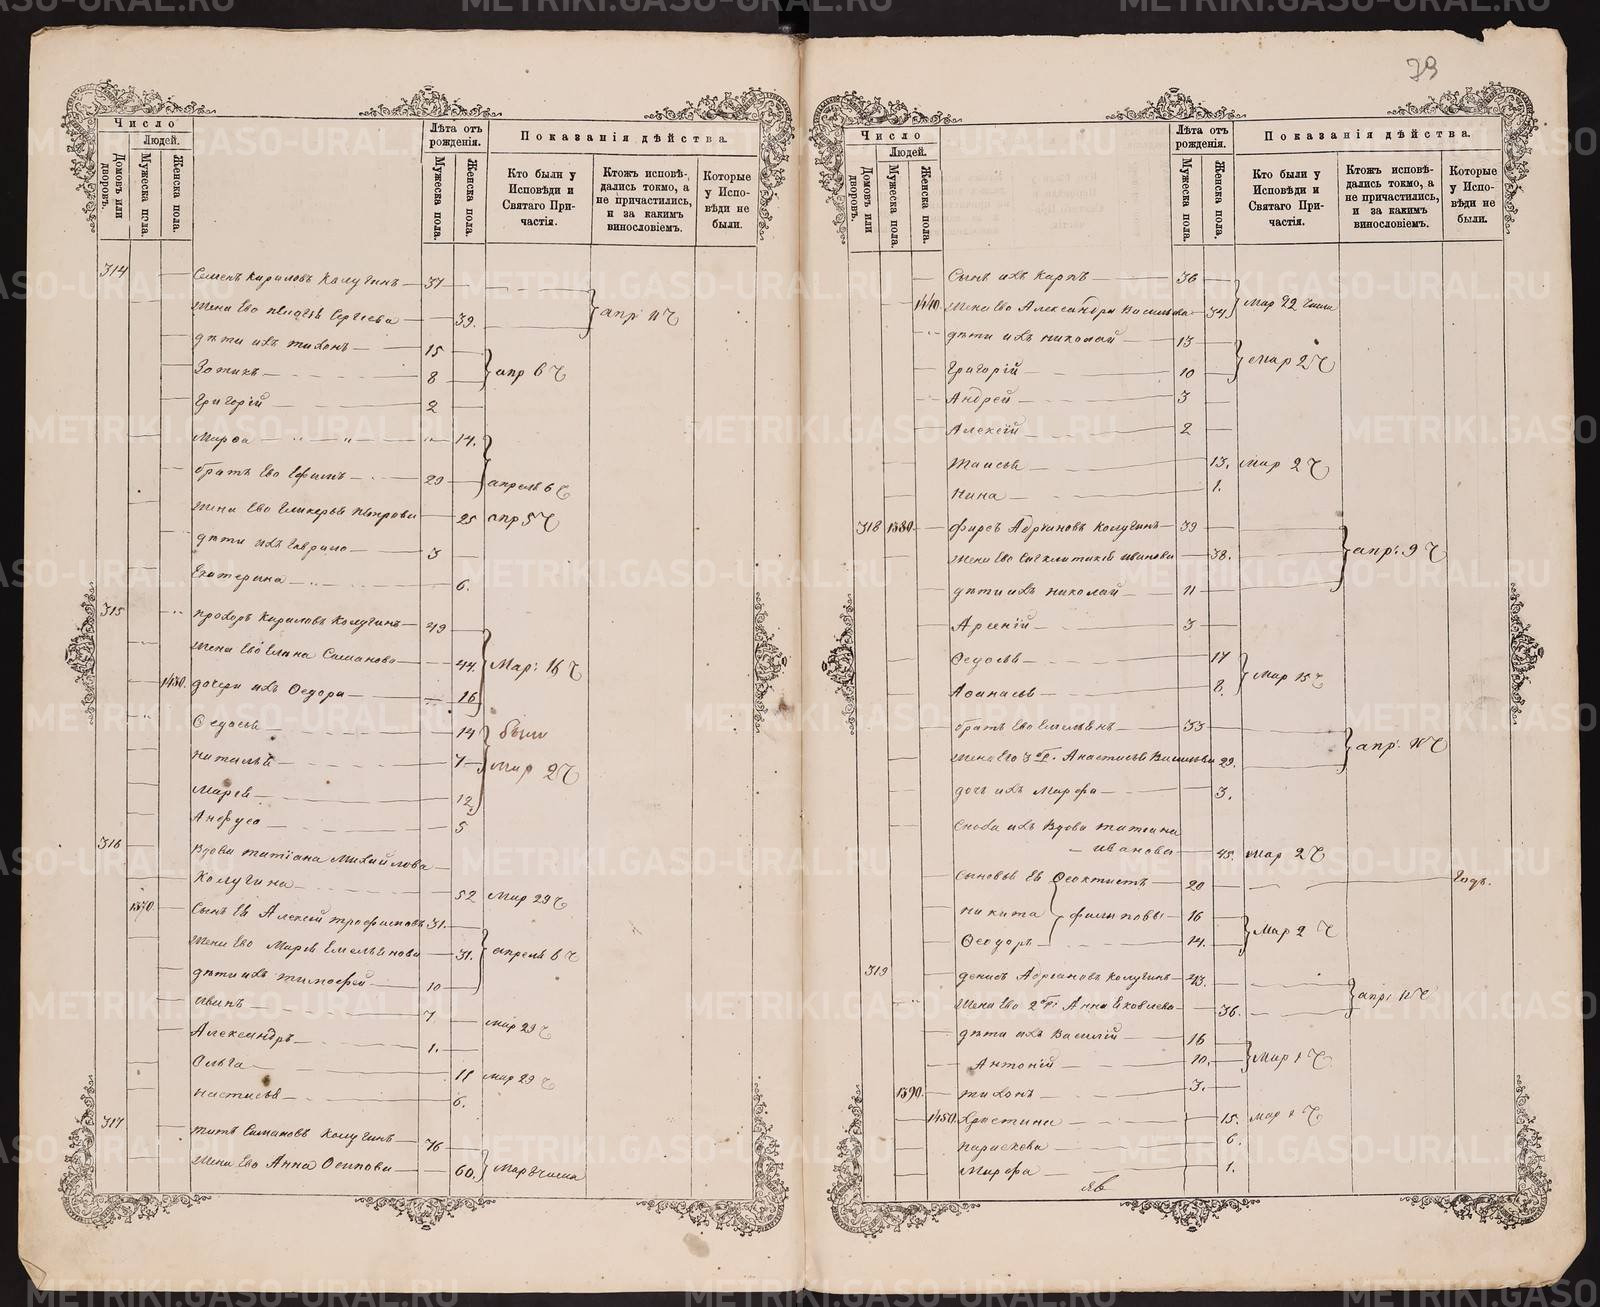 Число
Людей.
Домовъ или дворовъ.
Мужеска пола.
Женска пола.
Лѣта отъ рожденія.
Мужеска пола.
Женска пола.
Показанія дѣйства.
Кто были у Исповѣди и Святаго Причастія.
Ктожъ исповѣдались токмо, а не причастились, и за какимъ винословіемъ.
Которые у Исповѣди не были.
314 Семенъ Кириловъ Калугинъ 37
Жена Ево Сергіева 39. апр 11 Ч
дѣти ихъ Тихонъ 15
Зотикъ 8 апр 6 Ч
Григорій 2
Марфа 14.
братъ Ево Ефимъ 29 апреля 6 Ч
Жена Ево Гликерья Петрова 25 апр 5 Ч
дѣти ихъ Гаврило 3
Екатерина 6.
315 Прохоръ Кириловъ Колугинъ 49
Жена Ево Елена Симанова 44. Мар: 16 Ч
1430. дочери ихъ Федора 16
Федосья 14 были
Наталья 7 Мар 2 Ч
Марья 12.
Анфуса 5
316 Вдова Татіана Михайлова
Колугина 52 Мар 29 Ч
1370 Сынъ Ея Алексѣй Трофимовъ 31.
Жена Ево Марья Емельянова 31. апреля 6 Ч
дѣти ихъ Тимофей 10
Иванъ 7. мар 29 Ч
Александръ 1.
Ольга 11 мар 29 Ч
Настасья 6.
317 Титъ Симановъ Колугинъ 76
Жена Ево Анна Осипова 60. Мар числа
79
Число
Людей.
Домовъ или дворовъ.
Мужеска пола.
Женска пола.
Лѣта отъ рожденія.
Мужеска пола.
Женска пола.
Показанія дѣйства.
Кто были у Исповѣди и Святаго Причастія.
Ктожъ исповѣдались токмо, а не причастились, и за какимъ винословіемъ.
Которые у Исповѣди не были.
Сынъ ихъ Карпъ 36
1440. Жена Ево Александра Васильева 34 Мар 22 числа
дѣти ихъ Николай 13
Григорій 10 Мар 2 Ч
Андрей 3
Алексѣй 2
Таисья 13. Мар 2 Ч
Нина 1.
318 1380 Фирсъ Адріановъ Колугинъ 39
Жена Ево Сигклитикія Иванова 38. апр: 9 Ч
дѣти ихъ Николай 11
Арсеній 3
Федосья 17
Афанасья 8. Мар 15 Ч
братъ Ево Емельянъ 33
Жена Ево 3 бр. Анастасья Васильева 29. апр. 11 Ч
дочь ихъ Марфа 3.
Сноха ихъ Вдова Татіана
Иванова 45. Мар 2 Ч
Сыновья Ея Феоктистъ 20
Никита Филиповы 16
Феодоръ 14. Мар 2 Ч
319 Денисъ Адріановъ Колугинъ 43.
Жена Ево 2 бр. Анна Яковлева 36. апр: 11 Ч
дѣти ихъ Василій 16
Антоній 10. Мар 1 Ч
1390. Тихонъ 3.
1450. Христина 15. Мар Ч
Параскева 6.
Марфа 1.
METRIKI.GASO-URAL.RU